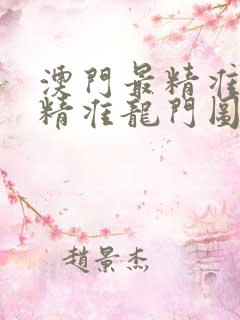 澳門最精准
精准龍門圖
趙景杰